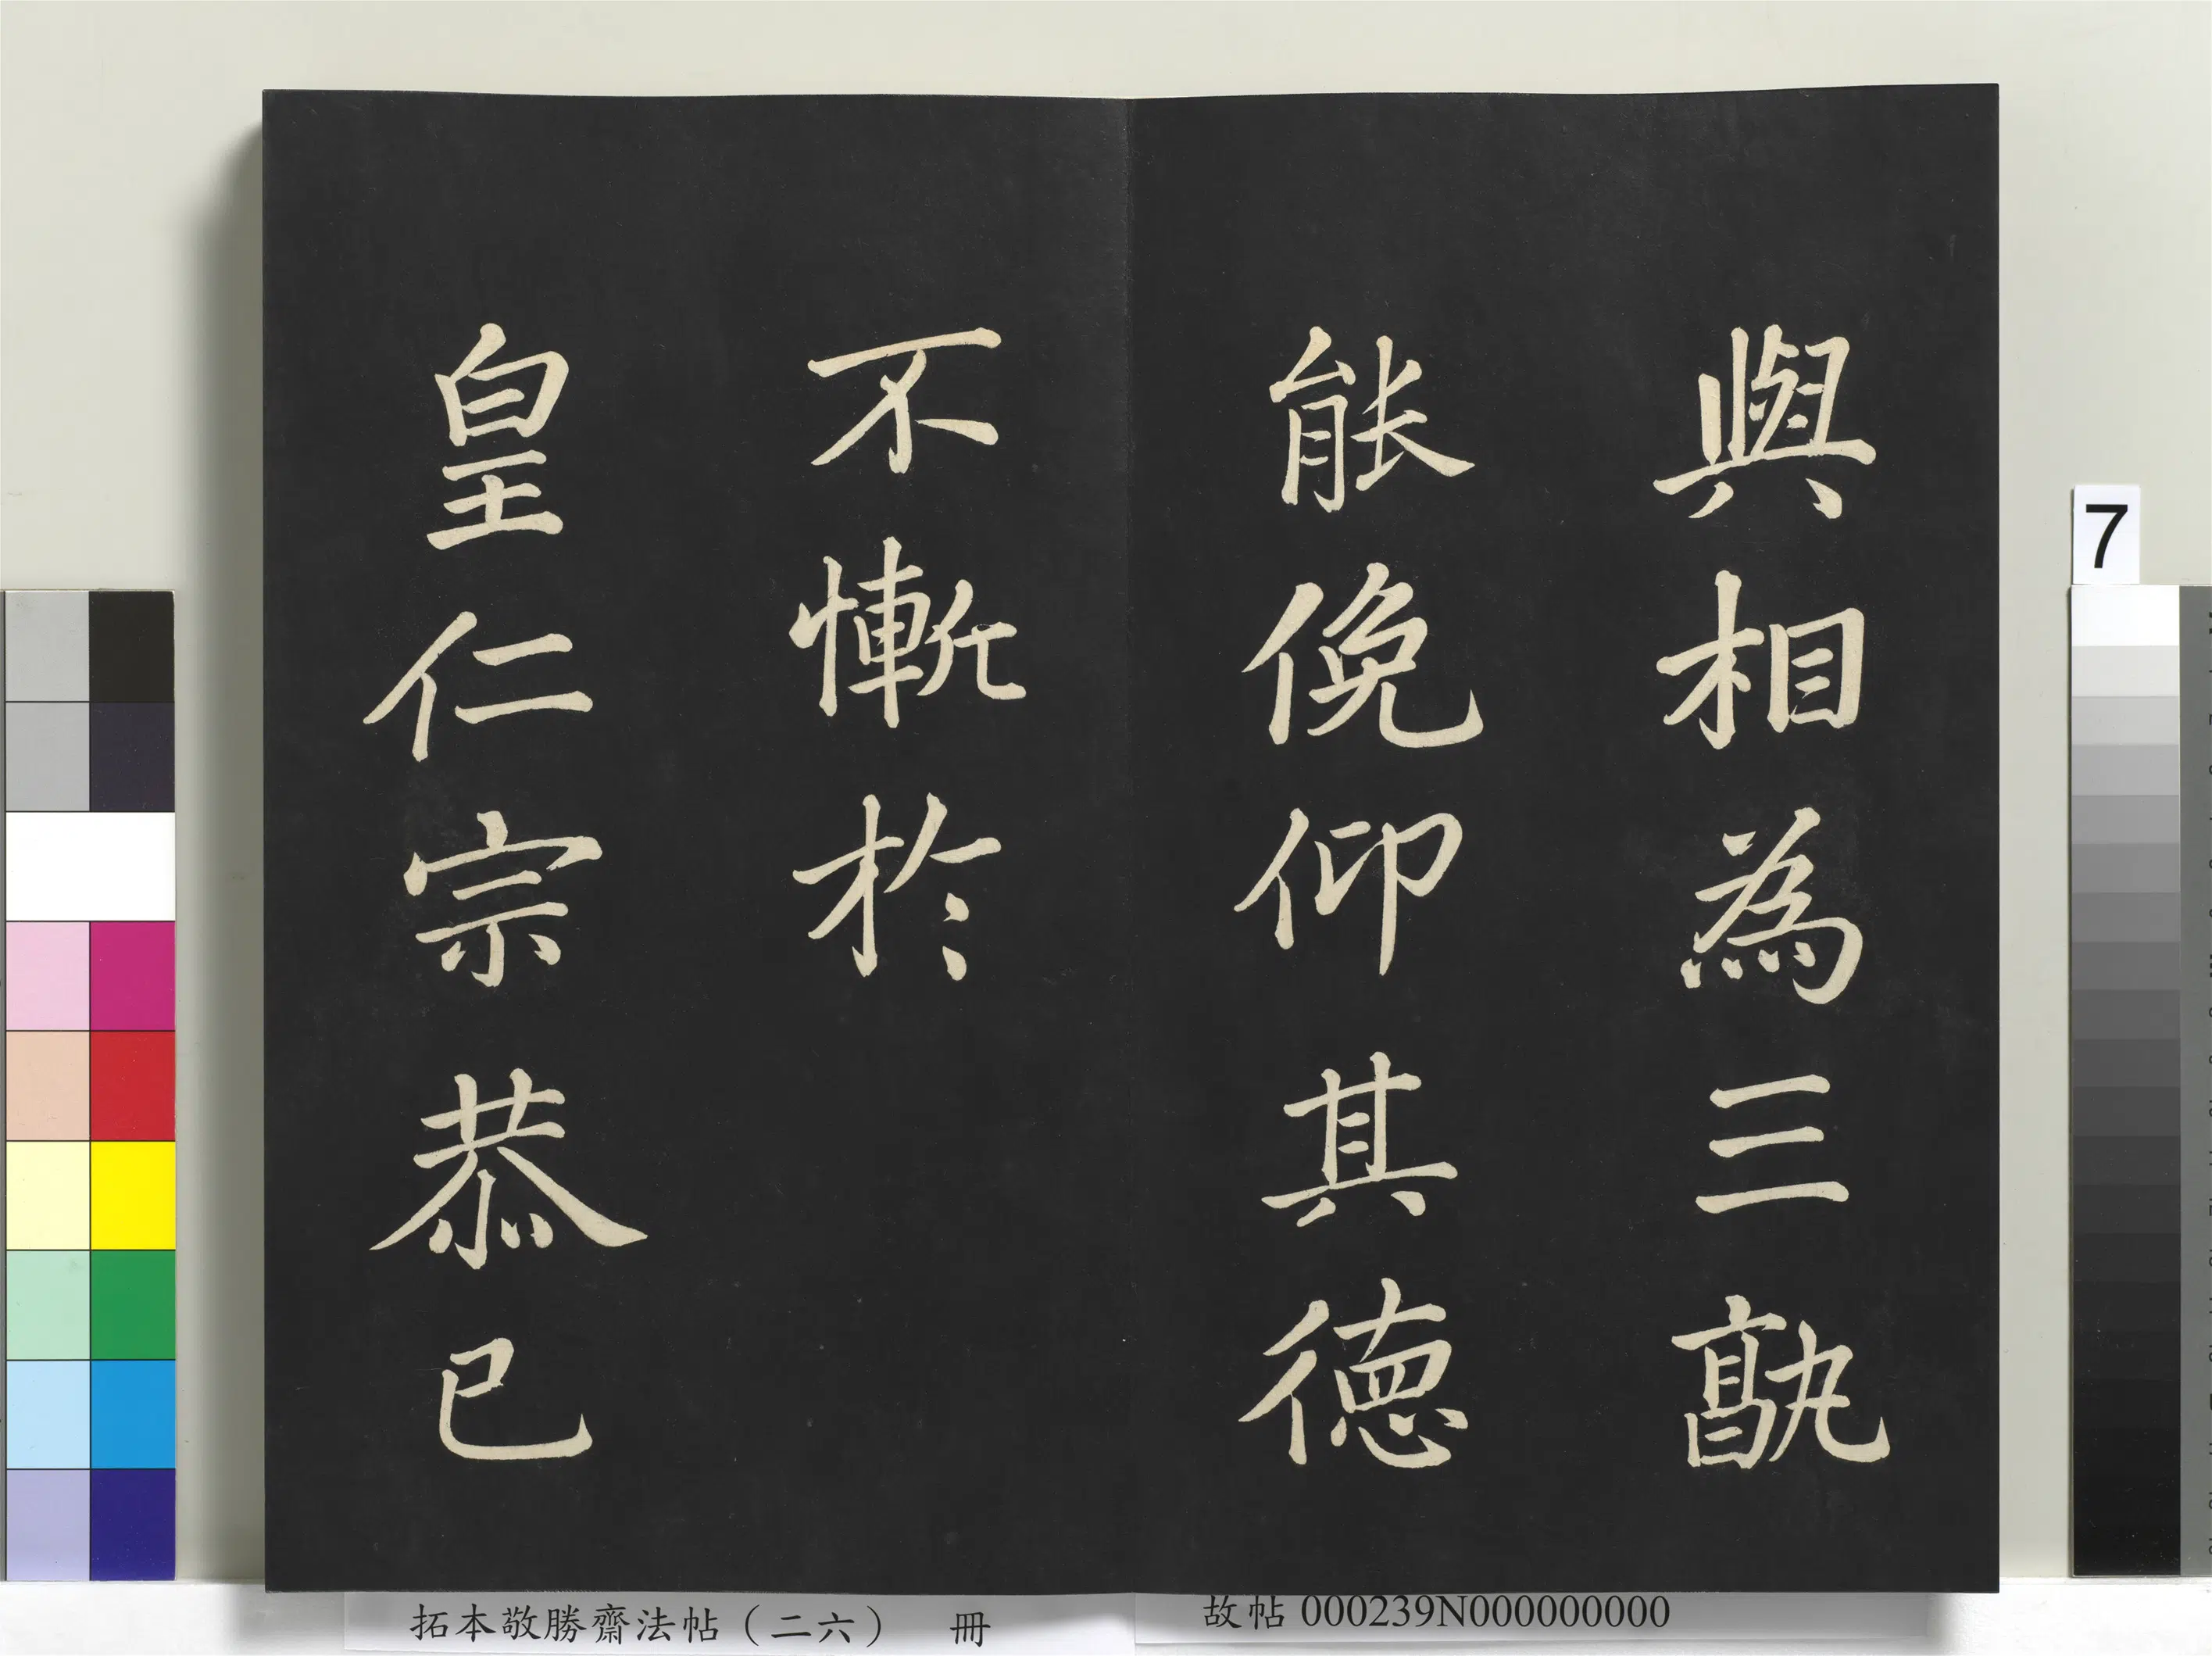 與相為三孰
能俛仰其德
不慚於
皇仁宗恭己
7
拓本敬勝齋法帖（二六） 冊
故帖 000239N000000000